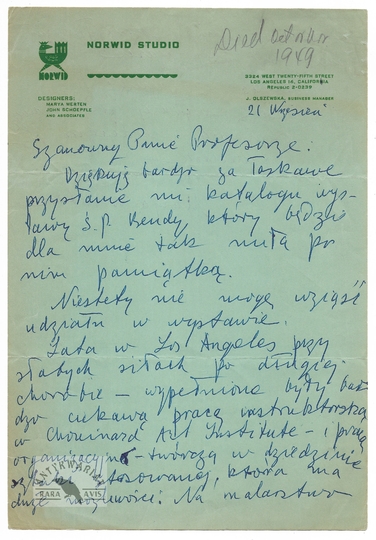 NORWID STUDIO
Died October
1949
NORWID
2384 WEST TWENTY-FIFTH STREET
LOS ANGELES 18, CALIFORNIA
REPUBLIC 2-0239
DESIGNERS:
MARYA WERTEN
JOHN SCHOEPFLE
AND ASSOCIATES
J. OLSZEWSKA, BUSINESS MANAGER
21 Wrzesień
Szanowny Panie Profesorze.
Dziękuję bardzo za łaskawe
przysłanie mi katalogu wys-
tawy Ś.P. Bendy, który będzie
dla mnie tak miłą po
nim pamiątką.
Niestety nie mogę wziąść
udziału w wystawie.
Lata w Los Angeles przy
słabych siłach po długiej
chorobie – wypełnione były bar
dzo ciekawą pracą instruktorską
w Chouinard Art Institute – i pracą
twórczą w dziedzinie
stosowanej, która ma
duże Na malarstwo
ANTYKWARIAT
RARA AVIS